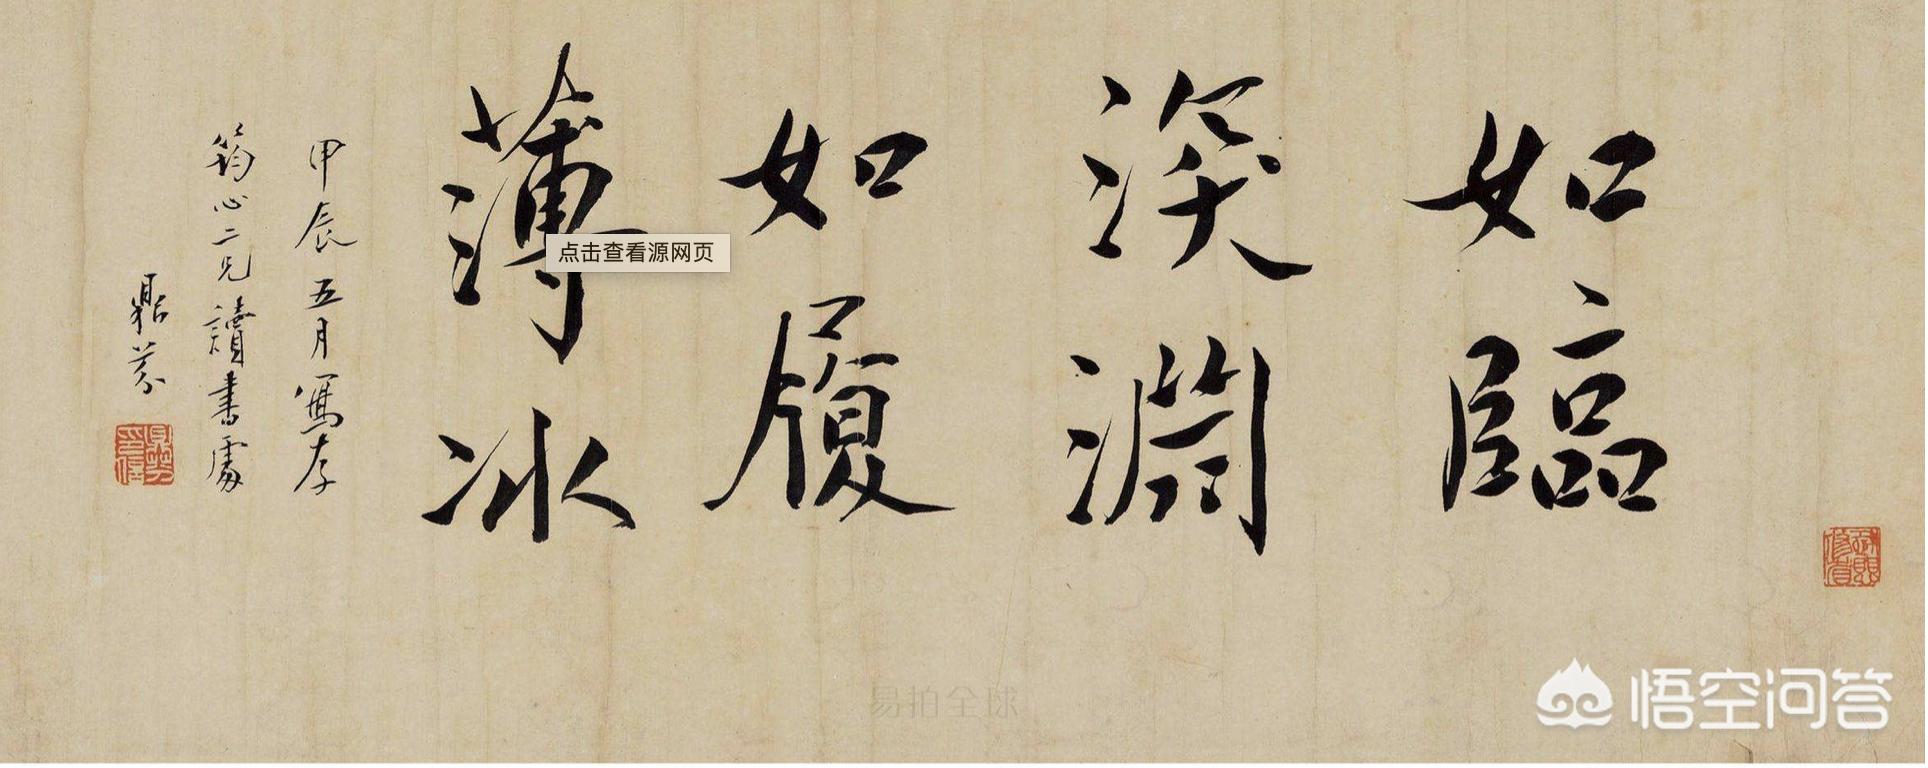 如臨
深淵
如履
薄冰
甲辰五月寫奉
筠心二兄讀書處
鼎芬
点击查看源网页
易拍全球
悟空问答